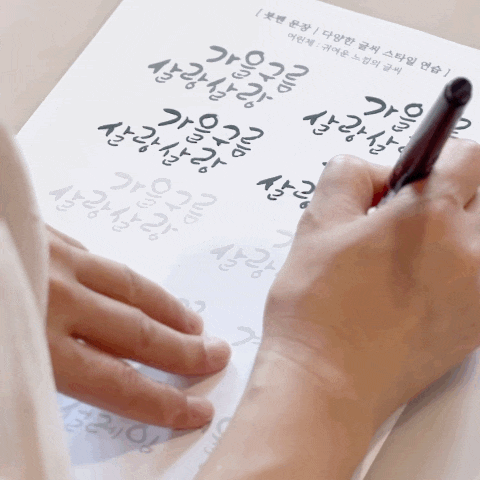 [ 붓펜 문장 | 다양한 글씨 스타일 연습 ]
어린체 : 귀여운 느낌의 글씨
가을구름
살랑살랑
가을구름
살랑살랑
가을구름
살랑살랑
가을
살랑살랑
살랑
살랑
설레임